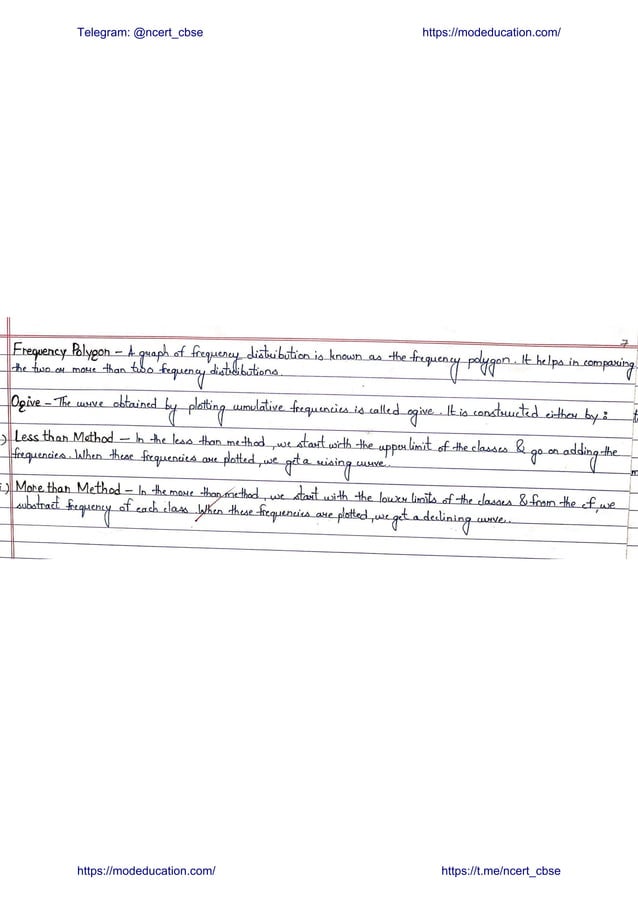 Telegram: @ncert_cbse https://modeducation.com/
7
Frequency Polygon – A graph of frequency distribution is known as the frequency polygon. It helps in comparing
the two or more than two frequency distributions.
Ogive – The curve obtained by plotting cumulative frequencies is called ogive. It is constructed either by :
) Less than Method – In the less than method, we start with the upper limit of the classes & go on adding the
frequencies. When these frequencies are plotted, we get a rising curve.
i.) More than Method – In the more than method, we start with the lower limits of the classes & from the cf, we
substract frequency of each class. When these frequencies are plotted, we get a declining curve.
https://modeducation.com/ https://t.me/ncert_cbse